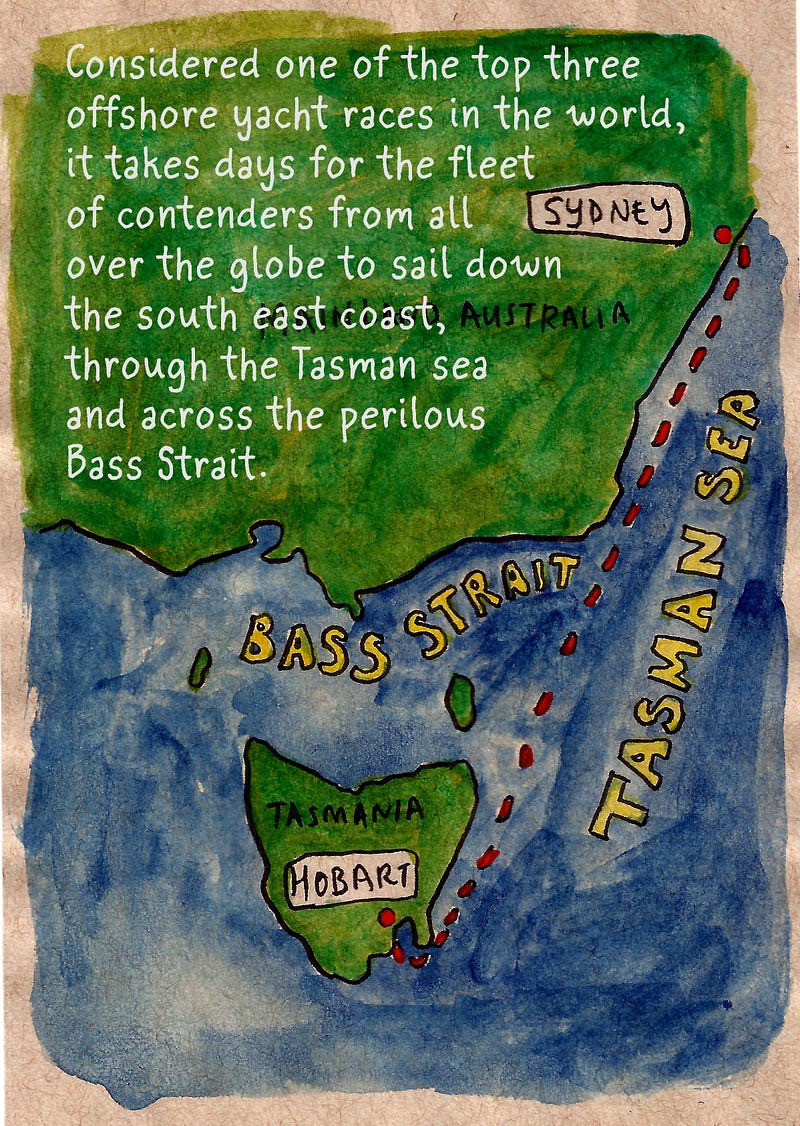 Considered one of the top three
offshore yacht races in the world,
it takes days for the fleet
of contenders from all
over the globe to sail down
the south east coast,
through the Tasman sea
and across the perilous
Bass Strait.
SYDNEY
MAINLAND AUSTRALIA
TASMAN SEA
BASS STRAIT
TASMANIA
HOBART